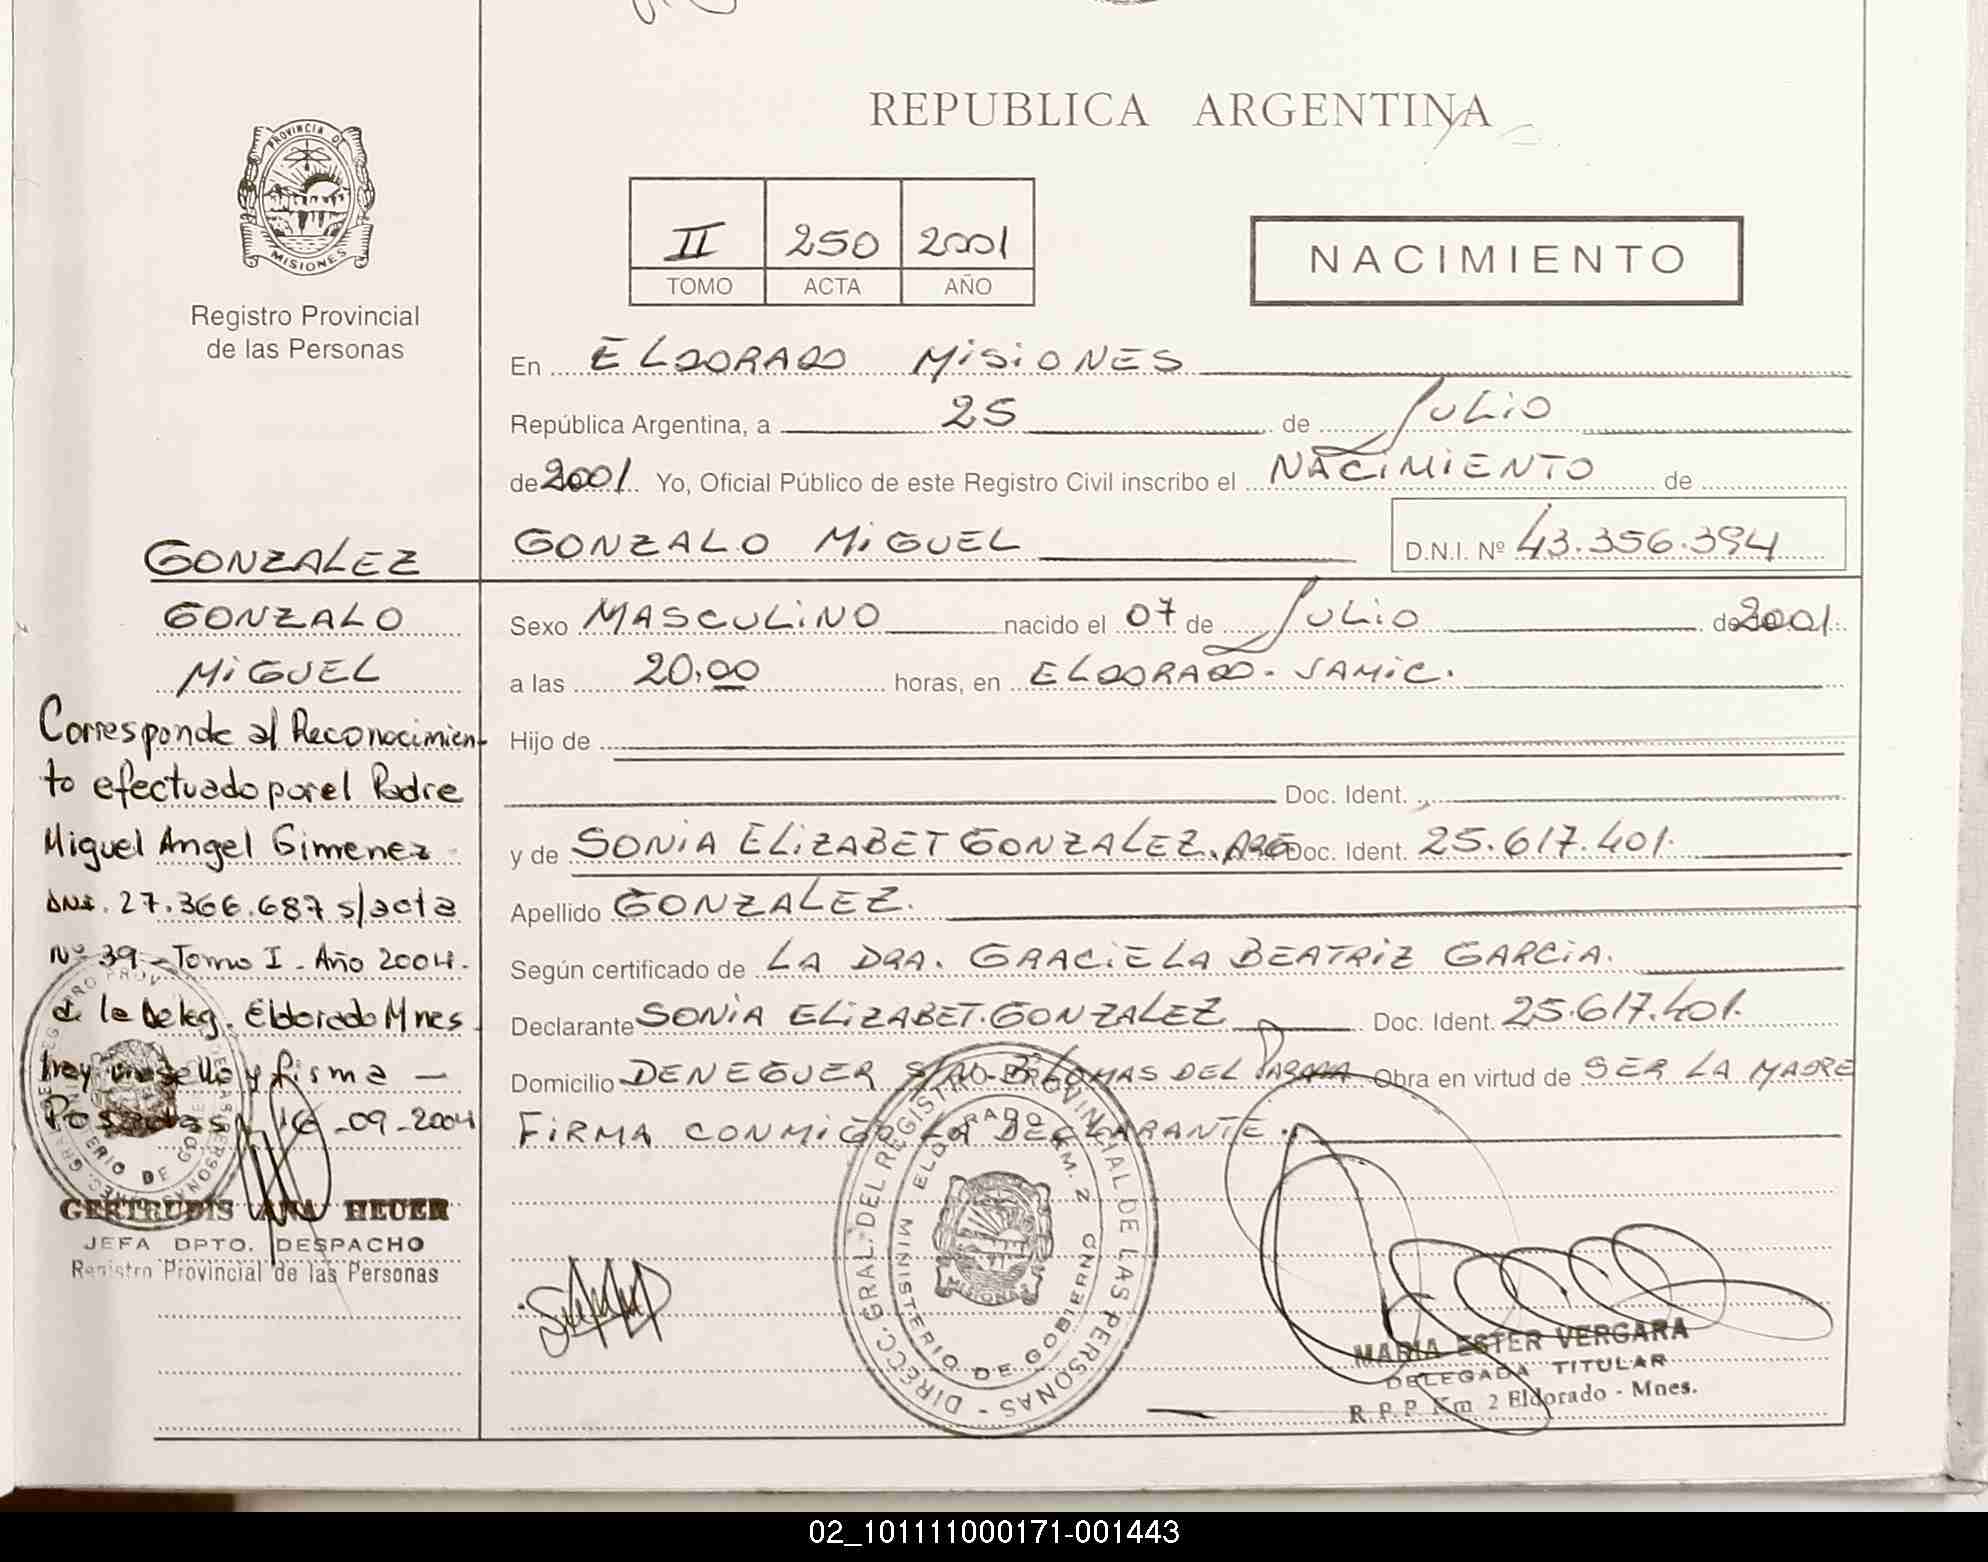 REPUBLICA ARGENTINA
PROVINCIA DE
MISIONES
Registro Provincial
de las Personas
II 250 2001
TOMO ACTA AÑO
NACIMIENTO
En ELDORADO MISIONES
República Argentina, a 25 de JULIO
de 2001. Yo, Oficial Público de este Registro Civil inscribo el NACIMIENTO de
GONZALO MIGUEL D.N.I. Nº 43.356.394
Sexo MASCULINO nacido el 07 de JULIO de 2001.
a las 20,00 horas, en ELDORADO - SAMIC.
Hijo de
Doc. Ident.
y de SONIA ELIZABET GONZALEZ. ARG Doc. Ident. 25.617.401.
Apellido GONZALEZ.
Según certificado de LA DRA. GRACIELA BEATRIZ GARCIA.
Declarante SONIA ELIZABET GONZALEZ Doc. Ident. 25.617.401.
Domicilio DENEGUER S/Nº Bº LOMAS DEL Obra en virtud de SER LA MADRE
FIRMA CONMIGO LA DECLARANTE.
GONZALEZ
GONZALO
MIGUEL
Corresponde al Reconocimien-
to efectuado por el Padre
Miguel Angel Gimenez
DNI. 27.366.687 s/acta
Nº 39 - Tomo I - Año 2004.
de la Deleg. Eldorado Mnes
hay un sello y firma -
Posadas, 16-09-2004
GERTRUDIS ANA HEUER
JEFA DPTO. DESPACHO
Registro Provincial de las Personas
DIRECC. GRAL. DEL REGISTRO PROVINCIAL DE LAS PERSONAS -
MINISTERIO DE GOBIERNO
ELDORADO KM. 2
MISIONES
MARIA ESTER VERGARA
DELEGADA TITULAR
R.P.P. Km 2 Eldorado - Mnes.
02_101111000171-001443